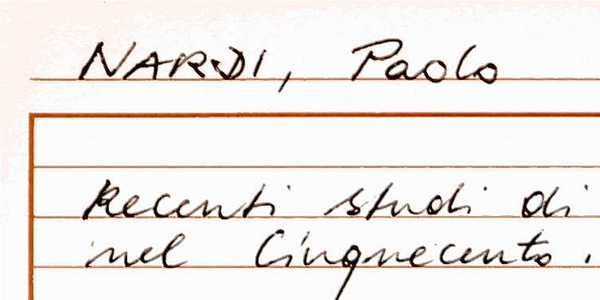 NARDI, Paolo
Recenti studi di
nel Cinquecento.